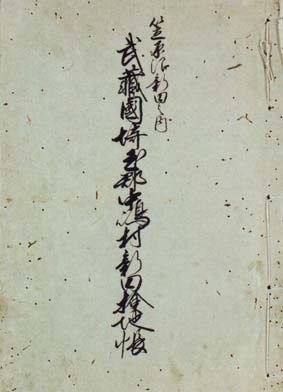 笠原沼新田之内
武藏國埼玉郡中嶋村新田検地帳